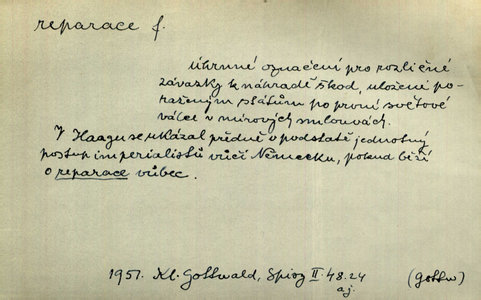 reparace f.
úhrnné označení pro rozličné
závazky k náhradě škod, uložené po-
raženým státům po první světové
válce v mírových smlouvách.
V Haagu se ukázal předně v podstatě jednotný
postup imperialistů vůči Německu, pokud běží
o reparace vůbec.
1951. Kl. Gottwald, Spisy II 48.24
aj.
(Gottw)